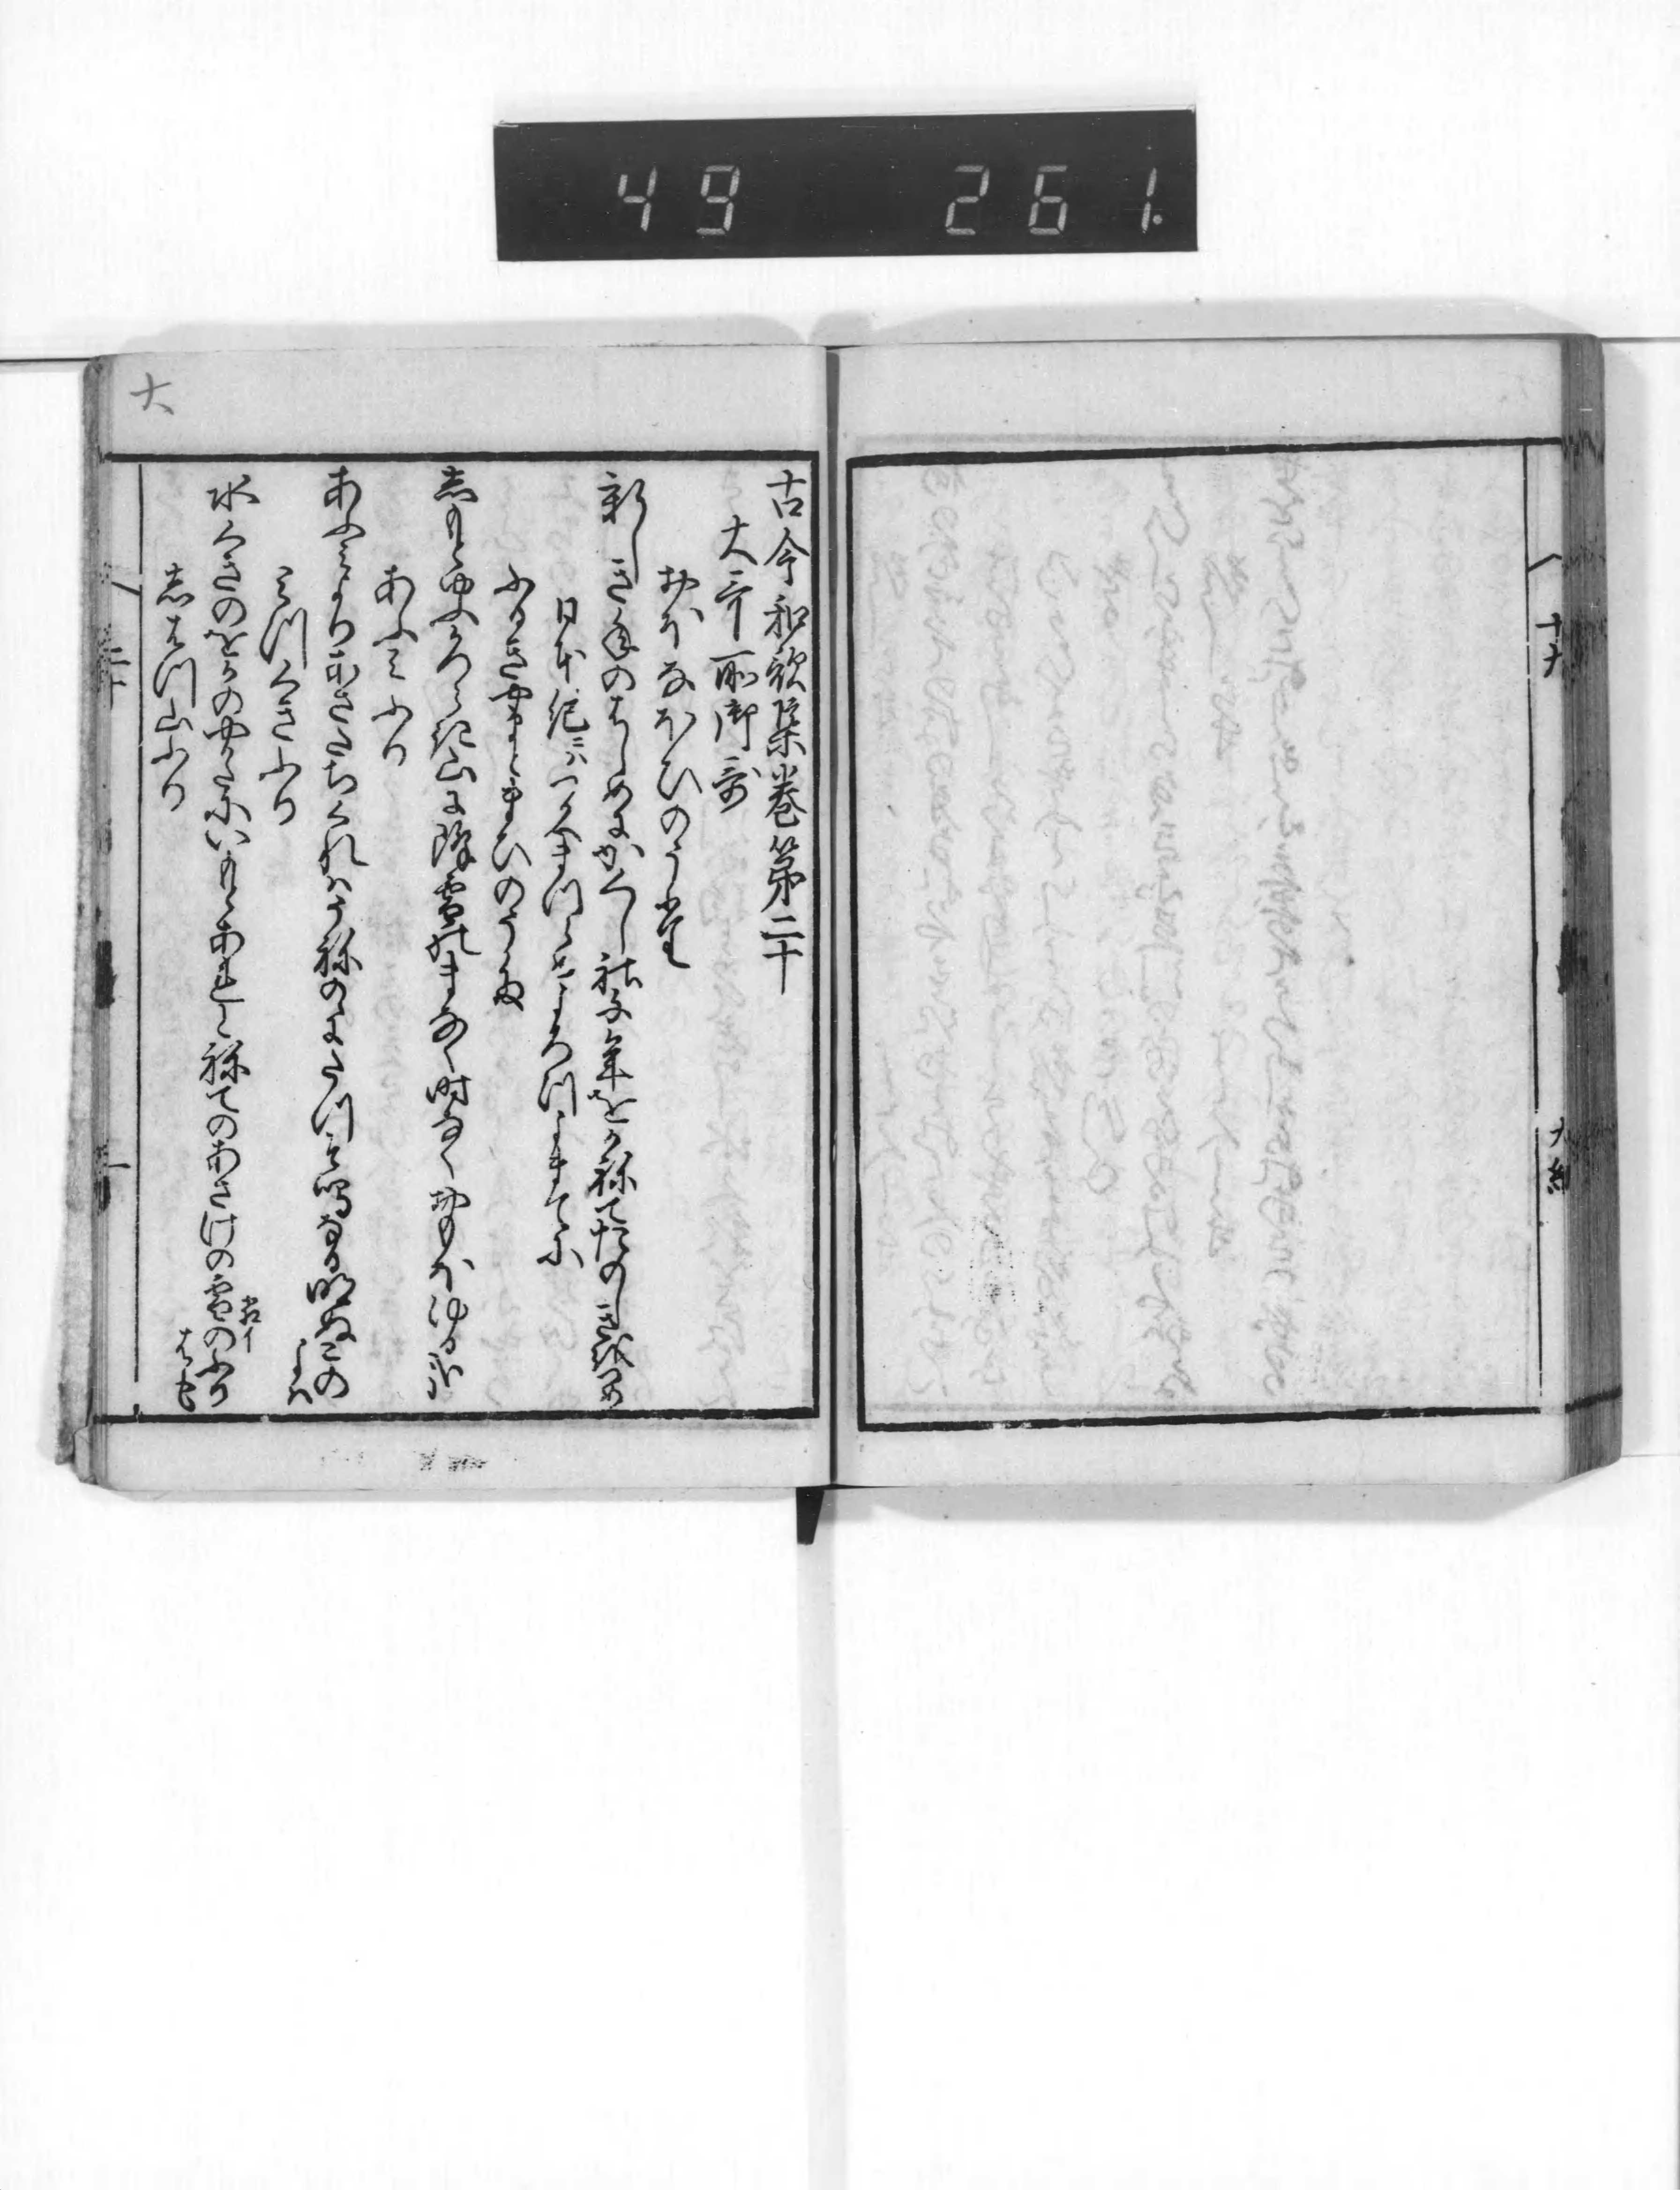 49 261.
十九
十九終
大
古今和歌集巻第二十
大哥所御哥
おほなほひのうた
新しき年のはしめにかくしこそ千年をかねてたのしきをつめ
日本紀ニハつかへまつらめよろつよまてに
ふるきやまとまひのうた
志もとゆふかつらき山に降雪のまなく時なくおもほゆる哉
あふみふり
あふみよりあさたちくれはうねのゝにたつそ鳴なる明ぬこの
よは
みつくきふり
水くきのをかのやかたにいもとあれとねてのあさけの霜のふり
はも
志はつ山ふり
二十
一